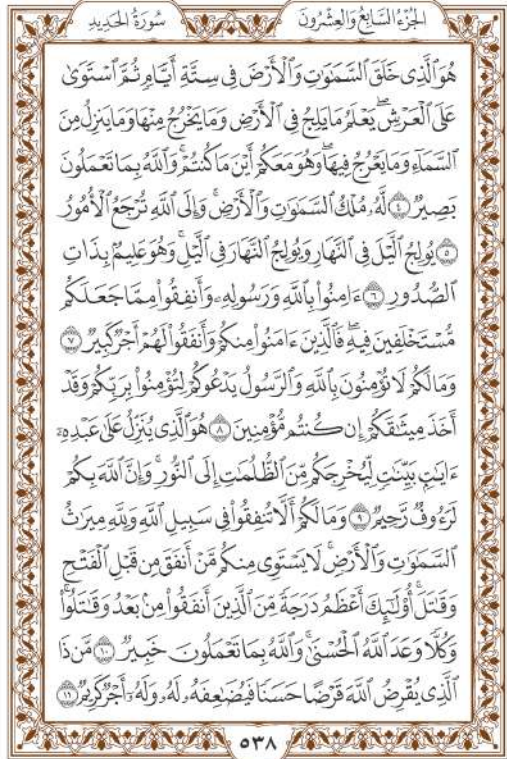 الجزء السابع والعشرون
سورة الحديد
هُوَ ٱلَّذِى خَلَقَ ٱلسَّمَـٰوَٰتِ وَٱلْأَرْضَ فِى سِتَّةِ أَيَّامٍ ثُمَّ ٱسْتَوَىٰ
عَلَى ٱلْعَرْشِۖ يَعْلَمُ مَا يَلِجُ فِى ٱلْأَرْضِ وَمَا يَخْرُجُ مِنْهَا وَمَا يَنزِلُ مِنَ
ٱلسَّمَآءِ وَمَا يَعْرُجُ فِيهَاۖ وَهُوَ مَعَكُمْ أَيْنَ مَا كُنتُمْۚ وَٱللَّهُ بِمَا تَعْمَلُونَ
بَصِيرٌ ٤ لَّهُۥ مُلْكُ ٱلسَّمَـٰوَٰتِ وَٱلْأَرْضِۚ وَإِلَى ٱللَّهِ تُرْجَعُ ٱلْأُمُورُ
٥ يُولِجُ ٱلَّيْلَ فِى ٱلنَّهَارِ وَيُولِجُ ٱلنَّهَارَ فِى ٱلَّيْلِۚ وَهُوَ عَلِيمٌۢ بِذَاتِ
ٱلصُّدُورِ ٦ ءَامِنُوا۟ بِٱللَّهِ وَرَسُولِهِۦ وَأَنفِقُوا۟ مِمَّا جَعَلَكُم
مُّسْتَخْلَفِينَ فِيهِۖ فَٱلَّذِينَ ءَامَنُوا۟ مِنكُمْ وَأَنفَقُوا۟ لَهُمْ أَجْرٌ كَبِيرٌ ٧
وَمَا لَكُمْ لَا تُؤْمِنُونَ بِٱللَّهِۙ وَٱلرَّسُولُ يَدْعُوكُمْ لِتُؤْمِنُوا۟ بِرَبِّكُمْ وَقَدْ
أَخَذَ مِيثَـٰقَكُمْ إِن كُنتُم مُّؤْمِنِينَ ٨ هُوَ ٱلَّذِى يُنَزِّلُ عَلَىٰ عَبْدِهِۦٓ
ءَايَـٰتٍۭ بَيِّنَـٰتٍ لِّيُخْرِجَكُم مِّنَ ٱلظُّلُمَـٰتِ إِلَى ٱلنُّورِۚ وَإِنَّ ٱللَّهَ بِكُمْ
لَرَءُوفٌ رَّحِيمٌ ٩ وَمَا لَكُمْ أَلَّا تُنفِقُوا۟ فِى سَبِيلِ ٱللَّهِ وَلِلَّهِ مِيرَٰثُ
ٱلسَّمَـٰوَٰتِ وَٱلْأَرْضِۚ لَا يَسْتَوِى مِنكُم مَّنْ أَنفَقَ مِن قَبْلِ ٱلْفَتْحِ
وَقَـٰتَلَۚ أُو۟لَـٰٓئِكَ أَعْظَمُ دَرَجَةً مِّنَ ٱلَّذِينَ أَنفَقُوا۟ مِنۢ بَعْدُ وَقَـٰتَلُوا۟ۚ
وَكُلًّا وَعَدَ ٱللَّهُ ٱلْحُسْنَىٰۚ وَٱللَّهُ بِمَا تَعْمَلُونَ خَبِيرٌ ١٠ مَّن ذَا
ٱلَّذِى يُقْرِضُ ٱللَّهَ قَرْضًا حَسَنًا فَيُضَـٰعِفَهُۥ لَهُۥ وَلَهُۥٓ أَجْرٌ كَرِيمٌ ١١
٥٣٨